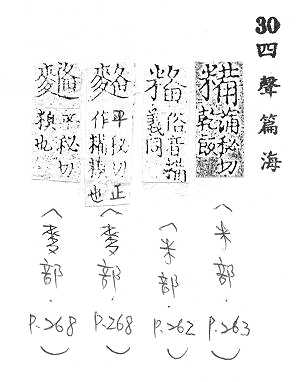 30 四聲篇海
糒 蒲秘切乾飯
(米部. P.263)
俗音糒義同
(米部. P.262)
平秘切正作糒糗也
(麥部. P.268)
平秘切也
(麥部. P.268)